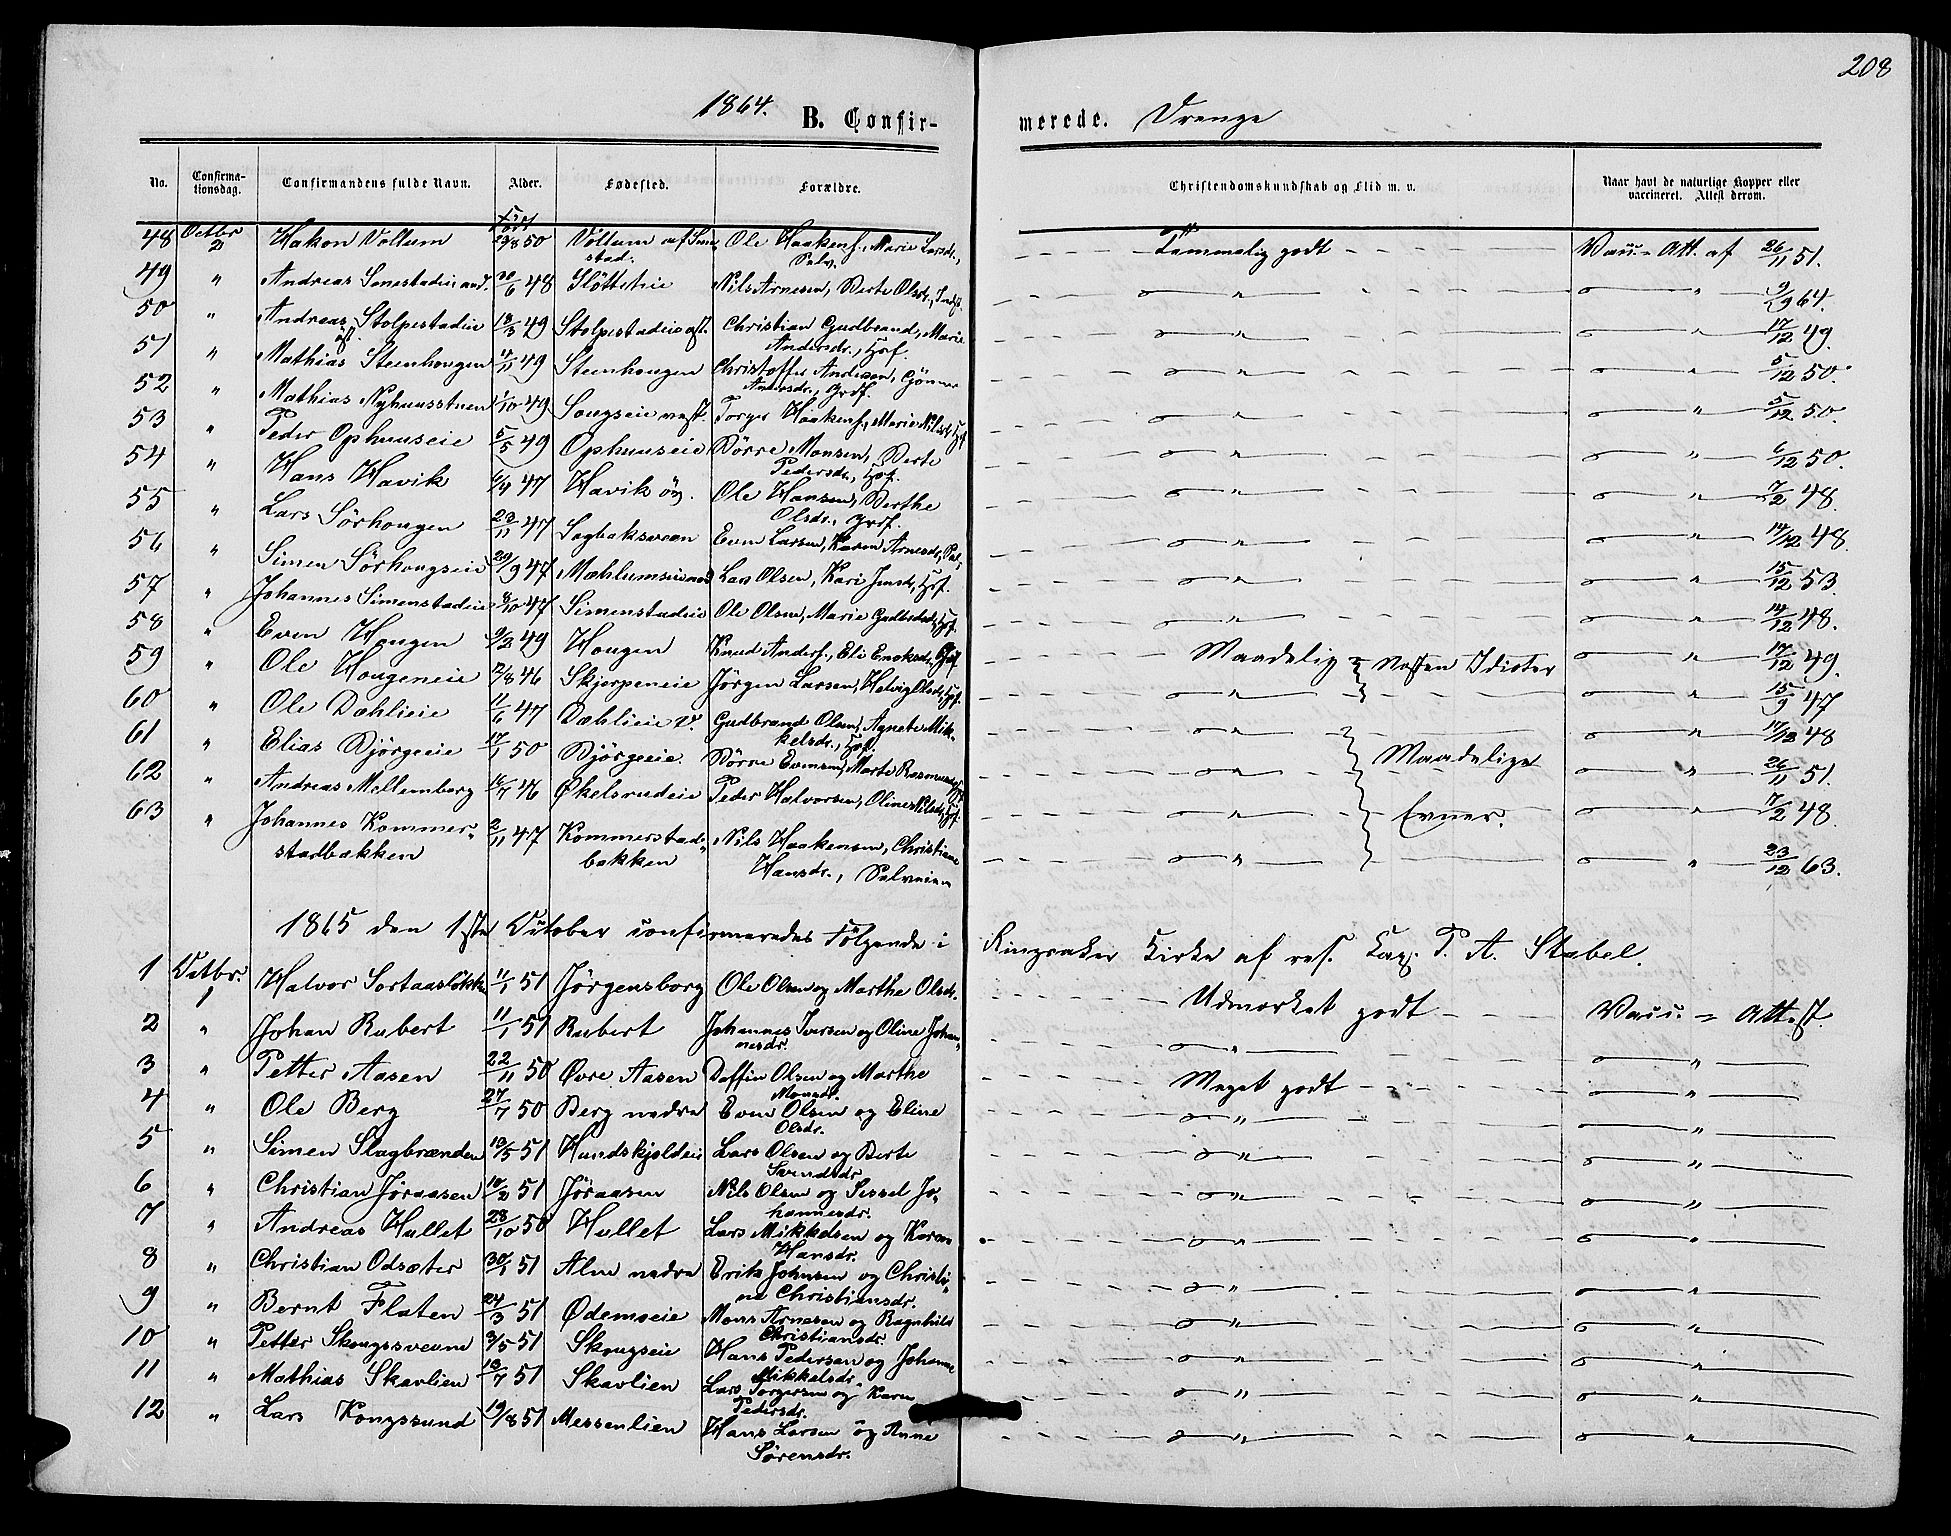 208
1864. B. Confir- merede. Drenge
No. Confirma-tionsdag. Confirmandens fulde Navn. Alder. Fødested. Forældre. Christendomskundskab og Flid m. v. Naar havt de naturlige Kopper eller vaccineret. Attest derom.
48 Octbr 2 Hakon Vollum 29/8 50 Vollum af Sme stad. Ole Haakens., Marie Larsdr., Selv. Temmelig godt Vacc. Att. af 26/11 51.
49 " Andreas Smestadeie 20/6 48 Slötteteie Nils Arnesen, Berte Olsdr., Inds. " " 9/9 64.
50 " Andreas Stolpestadeie 18/3 49 Stolpestadeie øst. Christian Gudbrand, Marie Andersdr., Hsf. " " 17/12 49.
51 " Mathias Steenhougen 4/11 49 Steenhougen Christoffer Andersen, Andersdr., Grdf. " " 5/12 50.
52 " Mathias Nyhuusstuen 1/10 49 Sougseie vest. Torger Haakens., Marie Nilsdr. Hsf " " 5/12 50.
53 " Peder Ophuuseie 5/5 49 Ophuuseie Börre Monsen, Berte Pedersdr., Hsf. " " 6/12 50.
54 " Hans Havik 47 Havik öv. Ole Hansen, Berthe Olsdr., Grdf. " " 7/2 48.
55 " Lars Sörhougen 23/11 47 Sagbaksveen Even Larsen, Karen Arnesdr., " " 14/12 48.
56 " Simen Sörhougseie 29/9 47 Mæhlumseie Lars Olsen, Kari Jensdr., Hsf. " " 15/12 53.
57 " Johannes Simenstadeie 8/10 47 Simenstadeie Ole Olsen, Marie Gudbrdsdr., Hsf. " " 14/12 48.
58 " Even Hougen 9/2 49 Hougen Knud Anders., Eli Enoksdr., Grdf. Maadelig Næsten Idioter " " 17/12 49.
59 " Ole Hougeneie 12/8 46 Skjerpeneie Jörgen Larsen, Helvig Olsdr., Hsf. " " 15/9 47
60 " Ole Dæhlieie 11/6 47 Dæhlieie v. Gudbrand Olsen, Agnete Mikkelsdr., Hsf. " " 17/12 48
61 " Elias Bjørgeeie 17/1 50 Bjørgeeie. Börre Evensen, Marte Rasmusdr Maadelige " " 26/11 51.
62 " Andreas Mellemberg 16/7 46 Økelsrudeie Peder Halvorsen, Oline Nilsdr., Hsf. Evner. " " 7/2 48.
63 " Johannes Kommerstadbakken 2/11 47 Kommerstadbakken Nils Haakensen, Christiane Hansdr., Selveiere " " 23/12 63.
1865 den 1ste October confirmeredes Følgende i Ringsaker Kirke af res. Cap. P. A. Stabel.
1 Octbr. 1 Halvor Sortaasløkken 11/1 51 Jørgensborg Ole Olsen og Marthe Olsdr. Udmærket godt Vacc. Attest.
2 " Johan Rubert 11/1 51 Rubert Johannes Iversen og Oline Johannesdr. " "
3 " Petter Aasen 22/11 50 Øvre Aasen Daffin Olsen og Marthe Monsdr. Meget godt "
4 " Ole Berg 27/7 50 Berg nedre Even Olsen og Eline Olsdr. " "
5 " Simen Slagbrænden 19/5 51 Hundskjoldeie Lars Olsen og Berte Svendsdr. " "
6 " Christian Jøraasen 10/2 51 Jøraasen Nils Olsen og Sissel Johannesdr. " "
7 " Andreas Hullet 28/10 50 Hullet Lars Mikkelsen og Karen Hansdr. " "
8 " Christian Odsæter 30/1 51 Alm nedre Erik Johnsen og Christine Christiansdr. " "
9 " Bernt Flaten 24/3 51 Ødemoeie Mons Arnesen og Ragnhild Christiansdr. " "
10 " Petter Skougssveen 3/5 51 Skougseie Hans Pedersen og Johanne Mikkelsdr. " "
11 " Mathias Skavlien 19/7 51 Skavlien Lars Torgersen og Karen Pedersdr. " "
12 " Lars Kongssund 19/8 51 Messenlien Hans Larsen og Anne Sörensdr. " "